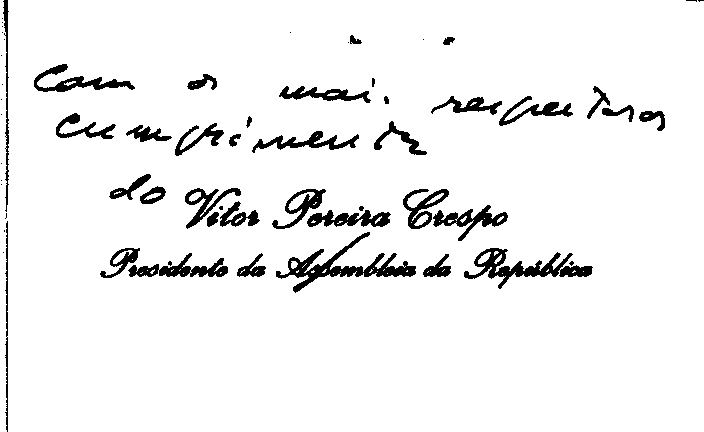 Com os mais respeitosos
cumprimentos
do Vitor Pereira Crespo
Presidente da Assembleia da República